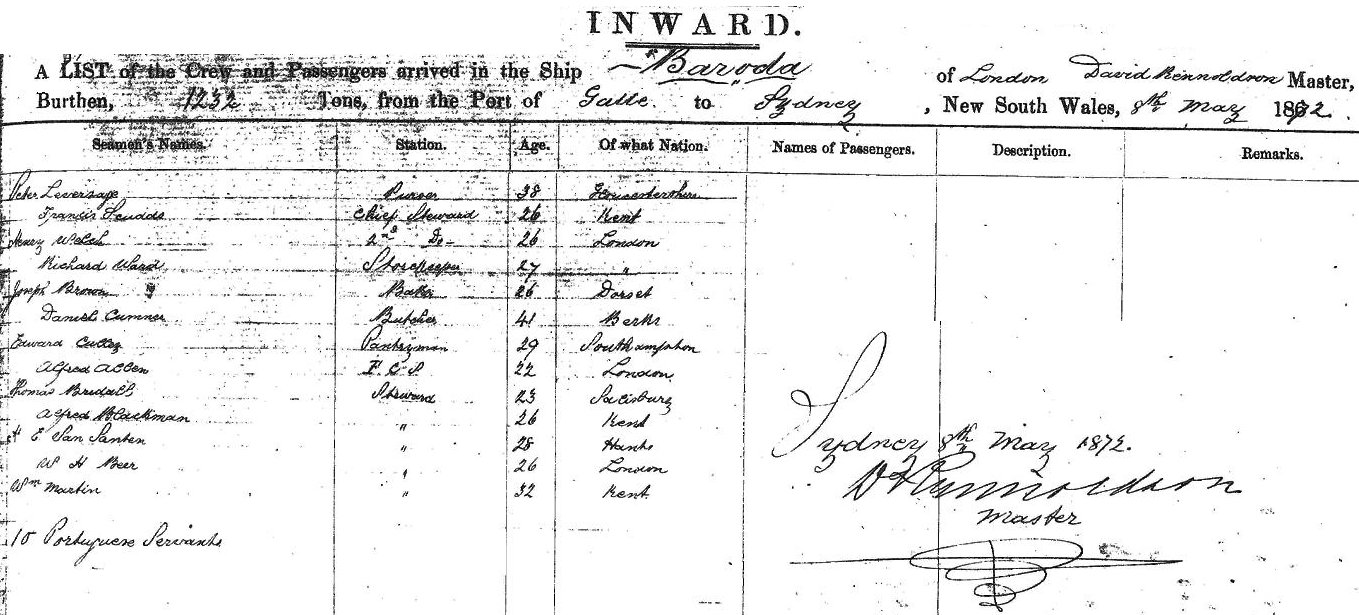 INWARD.
A LIST of the Crew and Passengers arrived in the Ship "Baroda" of London David Rennoldson Master,
Burthen, 1232 Tons, from the Port of Galle to Sydney, New South Wales, 8th May 1872.
Seamen's Names. Station. Age. Of what Nation. Names of Passengers. Description. Remarks.
Peter Leversage Purser 38 Gloucestershire
Francis Scudds Chief Steward 26 Kent
Henry Welch 2nd Do- 26 London
Richard Ward Storekeeper 27 "
Joseph Brown Baker 26 Dorset
Daniel Cumner Butcher 41 Berks
Edward Cutley Pantryman 29 Southampton
Alfred Allen F C S 22 London
Thomas Bridall Steward 23 Salisbury
Alfred Blackman " 26 Kent
E San Santen " 28 Hants
W H Beer " 26 London
Wm Martin " 32 Kent
10 Portuguese Servants
Sydney 8th May 1872.
D Rennoldson
Master